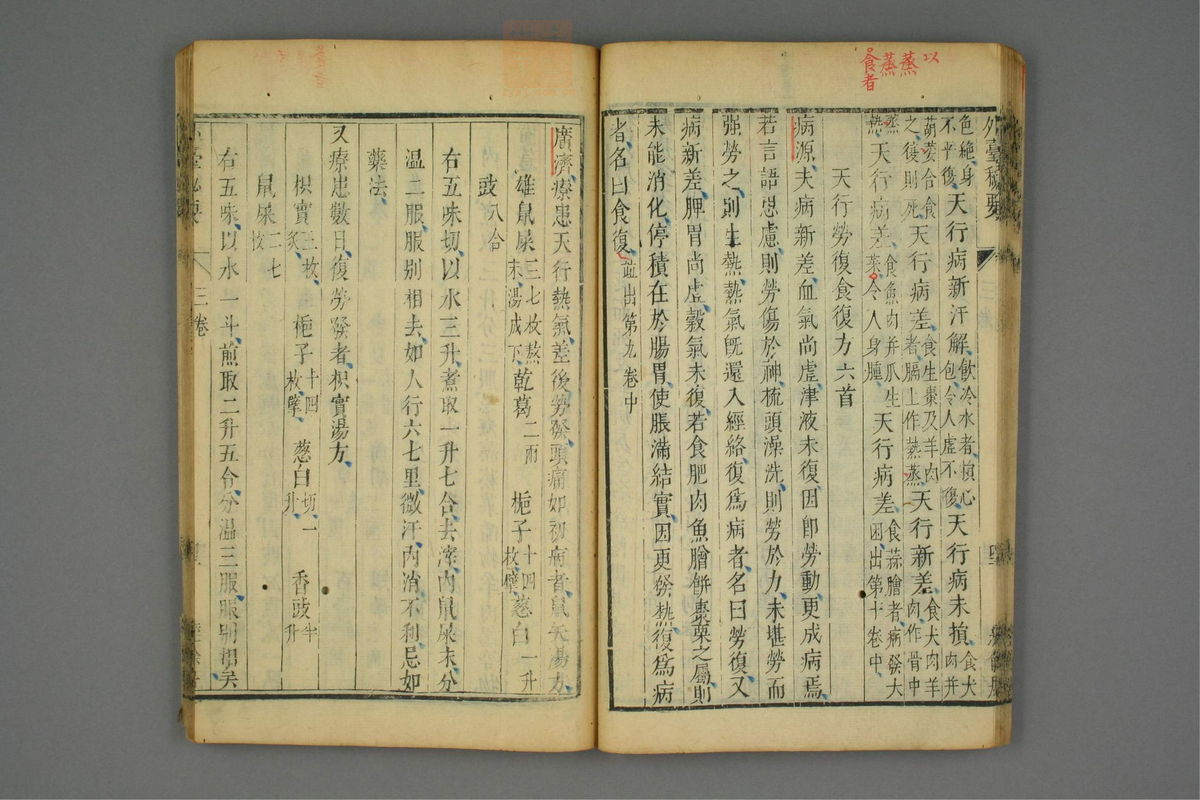 以
蒸
蒸
食者
外臺秘要
色絕身不平復天行病新汗解飲冷水者損心包令人虛不復天行病未損食犬肉并
葫荽合食之復則死天行病差食生棗及羊肉者膈上作蒸蒸天行新差食犬肉羊肉作骨中
蒸熱天行病差食魚肉并爪生菜令人身腫天行病差食蒜膾者病發大困出第十卷中
天行勞復食復方六首
病源夫病新差血氣尚虛津液未復因即勞動更成病焉
若言語思慮則勞傷於神梳頭澡洗則勞於力未堪勞而
强勞之則生熱熱氣旣還入經絡復爲病者名曰勞復又
病新差脾胃尚虛穀氣未復若食肥肉魚膾餅棗栗之屬則
未能消化停積在於腸胃使脹滿結實因更發熱復爲病
者名曰食復並出第九卷中
廣濟療患天行熱氣差後勞發頭痛如初病者鼠矢湯方
雄鼠屎三七枚蒸末湯成下乾葛二兩梔子十四枚擘葱白一升
豉八合
右五味切以水三升煮取一升七合去滓內鼠屎末分
温二服服別相去如人行六七里微汗內消不利忌如
藥法
又療患數日復勞發者枳實湯方
枳實三枚炙梔子十四枚擘葱白切一升香豉半升
鼠屎二七枚
右五味以水一斗煎取二升五合分温三服服別相去
三卷